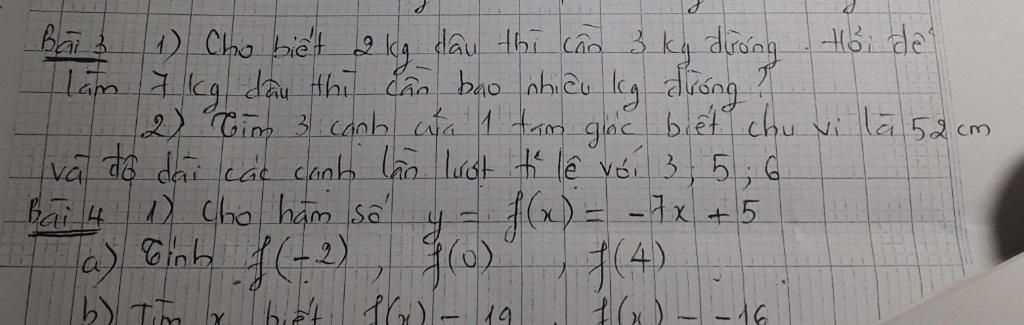 Bài 3 1) Cho biết 2 kg dâu thì cần 3 kg đường. Hỏi để
làm 7 kg dâu thì cần bao nhiêu kg đường?
2) Tìm 3 cạnh của 1 tam giác biết chu vi là 52 cm
và độ dài các cạnh lần lượt tỉ lệ với 3; 5; 6
Bài 4 1) Cho hàm số y = f(x) = -7x + 5
a) Tính f(-2), f(0), f(4)
b) Tìm x biết f(x) = 19, f(x) = -16